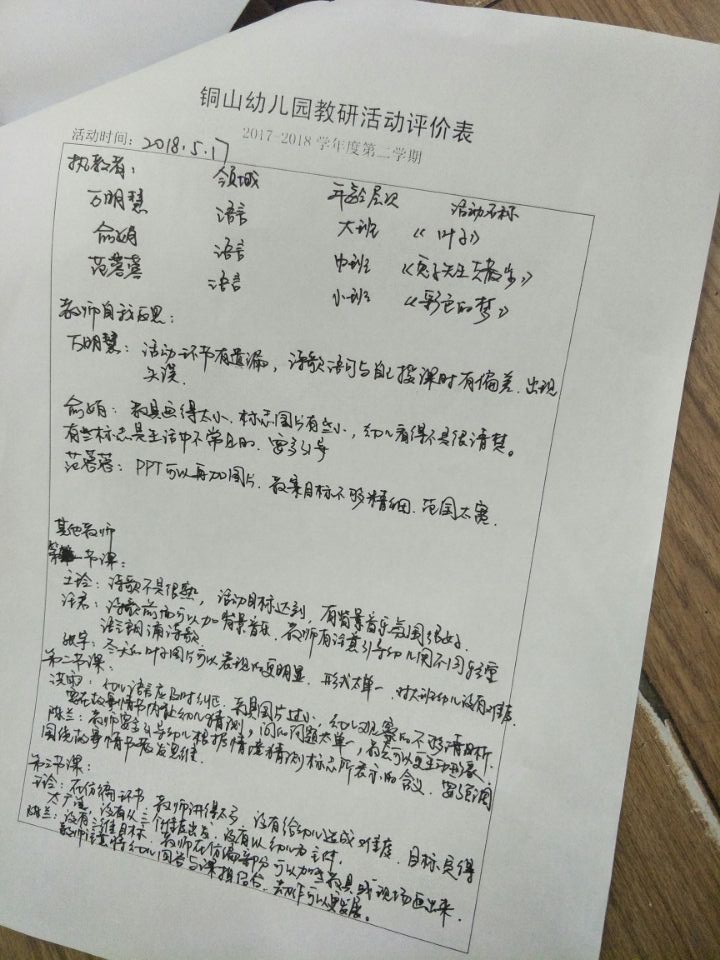 铜山幼儿园教研活动评价表
2017-2018 学年度第二学期
活动时间：2018.5.17
执教者： 领域 年龄层次 活动名称
万明慧 语言 大班 《叶子》
俞娟 语言 中班 《兔子先生去散步》
范蓉蓉 语言 小班 《彩色的梦》
教师自我反思：
万明慧：活动环节有遗漏，诗歌语句与自己授课时有偏差，出现
失误．
俞娟：教具画得太小，标志图片有些小，幼儿看得不是很清楚。
有些标志是生活中不常见的，要多引导
范蓉蓉：PPT可以再加图片，教案目标不够精细，范围太宽．
其他教师
第一节课：
王玲：诗歌不是很熟，活动目标达到，有背景音乐氛围很好．
汪君：诗歌前面可以加背景音乐，教师有注意引导幼儿用不同轻重
语气朗诵诗歌．
冬天和叶子图片可以表现的更明显．形式太单一，对大班幼儿没有难度．
第二节课：
洪雨：幼儿语言应及时纠正，教具图片过小，幼儿观察的不够清晰．
要在故事情节内让幼儿猜测，问的问题太单一，教态可以更生动形象．
陈兰：教师要多引导幼儿根据情境猜测标志所表示的含义．要多强调
围绕故事情节来发思维．
第三节课：
王玲：在仿编环节，教师讲得太多，没有给幼儿造成难度．目标定得
太广泛，没有从三个维度出发，没有以幼儿为主体．
陈兰：没有三维目标．教师在仿编部分可以加些教具或现场画出来．
教师注意将幼儿回答与课相结合，动作可以更发展。